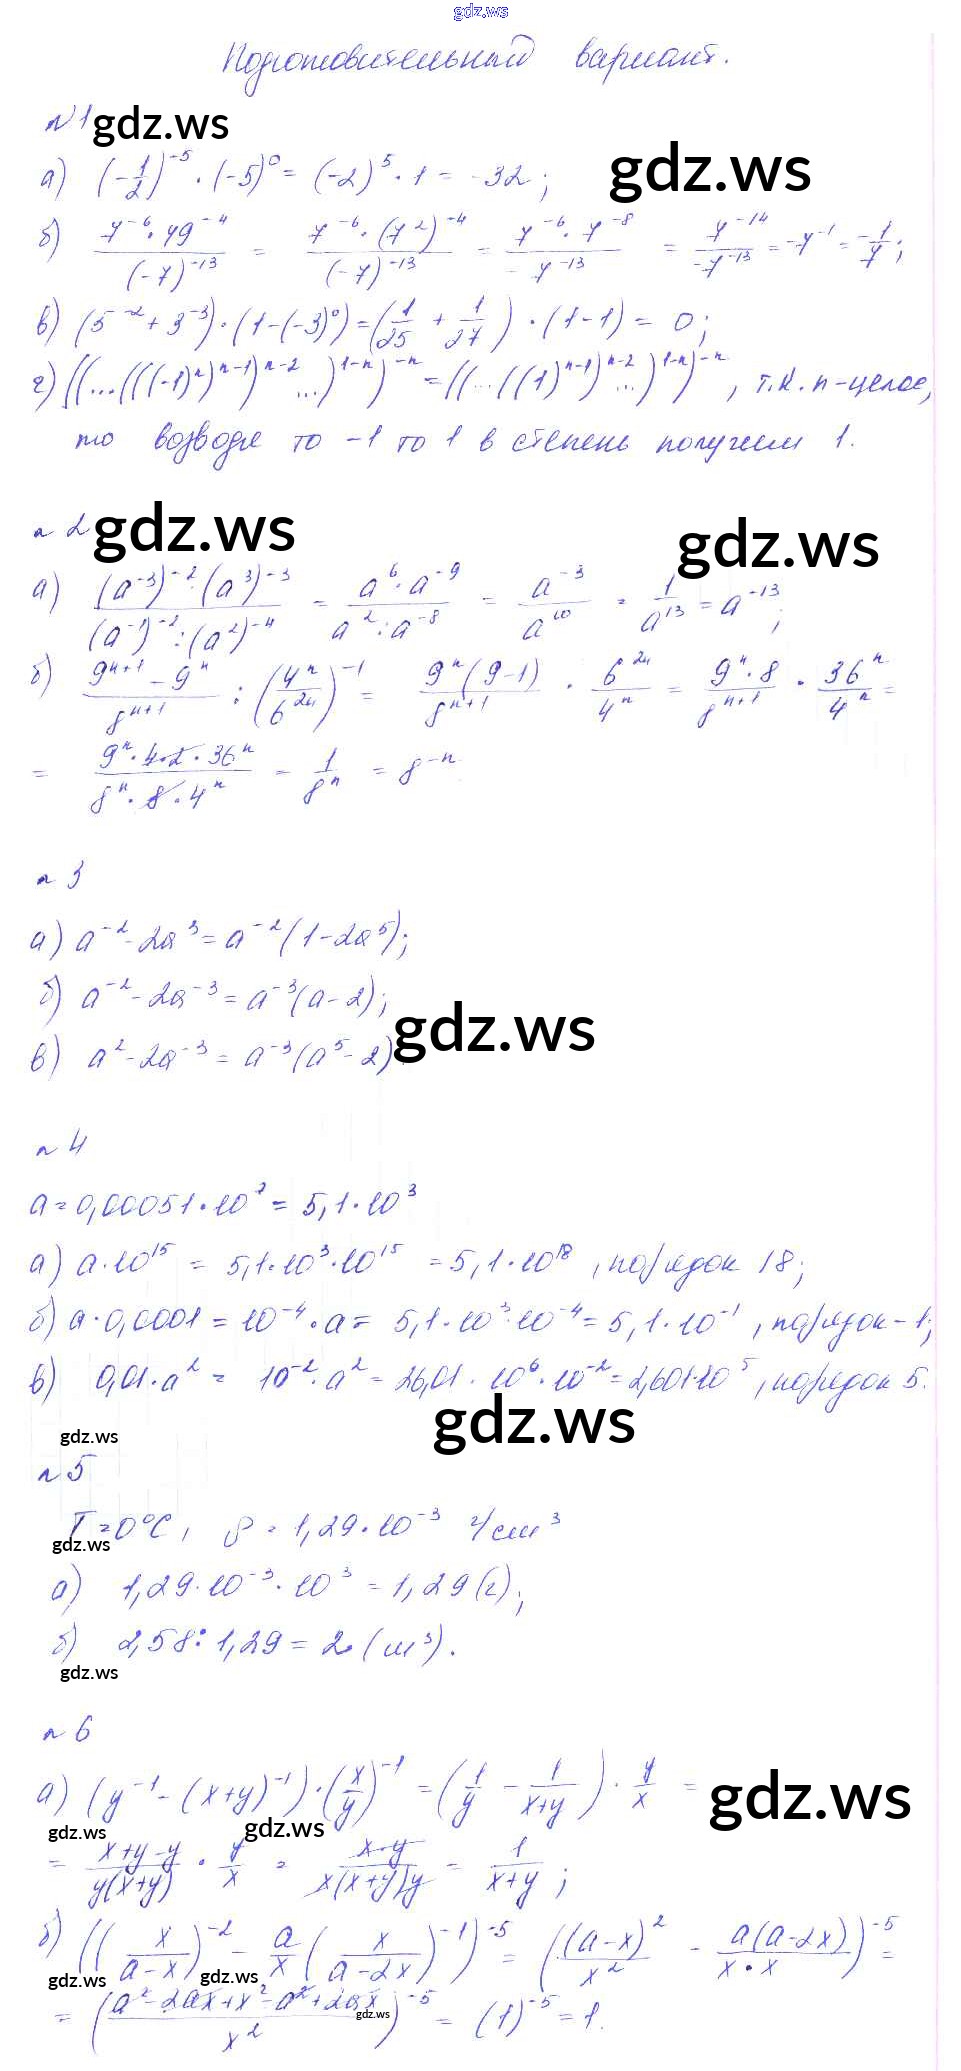 gdz.ws
Подготовительный вариант.
N1 gdz.ws
а) (-1/2)^-5 · (-5)^0 = (-2)^5 · 1 = -32; gdz.ws
б) 7^-6 · 49^-4 / (-7)^-13 = 7^-6 · (7^2)^-4 / (-7)^-13 = 7^-6 · 7^-8 / -7^-13 = 7^-14 / -7^-13 = -7^-1 = -1/7;
в) (5^-2 + 3^-3) · (1-(-3)^0) = (1/25 + 1/27) · (1-1) = 0;
г) ((...(((-1)^n)^n-1)^n-2 ...)^1-n)^-n = ((...((1)^n-1)^n-2 ...)^1-n)^-n, т.к. n-целое,
то возводя то -1 то 1 в степень получим 1.
n 2 gdz.ws
gdz.ws
а) (a^-3)^-2 · (a^3)^-3 / (a^-1)^-2 : (a^2)^-4 = a^6 · a^-9 / a^2 : a^-8 = a^-3 / a^10 = 1/a^13 = a^-13;
б) 9^n+1 - 9^n / 8^n+1 : (4^n / 6^2n)^-1 = 9^n (9-1) / 8^n+1 · 6^2n / 4^n = 9^n · 8 / 8^n+1 · 36^n / 4^n =
= 9^n · 4 · 2 · 36^n / 8^n · 8 · 4^n = 1/8^n = 8^-n
n 3
а) a^-2 - 2a^3 = a^-2 (1-2a^5);
б) a^-2 - 2a^-3 = a^-3 (a-2);
gdz.ws
в) a^2 - 2a^-3 = a^-3 (a^5 - 2)
n 4
a = 0,00051 · 10^7 = 5,1 · 10^3
а) a · 10^15 = 5,1 · 10^3 · 10^15 = 5,1 · 10^18, порядок 18;
б) a · 0,0001 = 10^-4 · a = 5,1 · 10^3 · 10^-4 = 5,1 · 10^-1, порядок -1;
в) 0,01 · a^2 = 10^-2 · a^2 = 26,01 · 10^6 · 10^-2 = 2,601·10^5, порядок 5.
gdz.ws
gdz.ws
n 5
T = 0°C, ρ = 1,29 · 10^-3 г/см^3
gdz.ws
а) 1,29 · 10^-3 · 10^3 = 1,29 (г);
б) 2,58 : 1,29 = 2 (м^3).
gdz.ws
n 6
а) (y^-1 - (x+y)^-1) · (x/y)^-1 = (1/y - 1/x+y) · y/x = gdz.ws
gdz.ws gdz.ws
= x+y-y / y(x+y) · y/x = x·y / x(x+y)y = 1/x+y;
б) ((x/a-x)^-2 - a/x (x/a-2x)^-1)^-5 = ((a-x)^2 / x^2 - a(a-2x) / x·x)^-5 =
gdz.ws gdz.ws
= (a^2-2ax+x^2-a^2+2ax / x^2)^-5 = (1)^-5 = 1.
gdz.ws